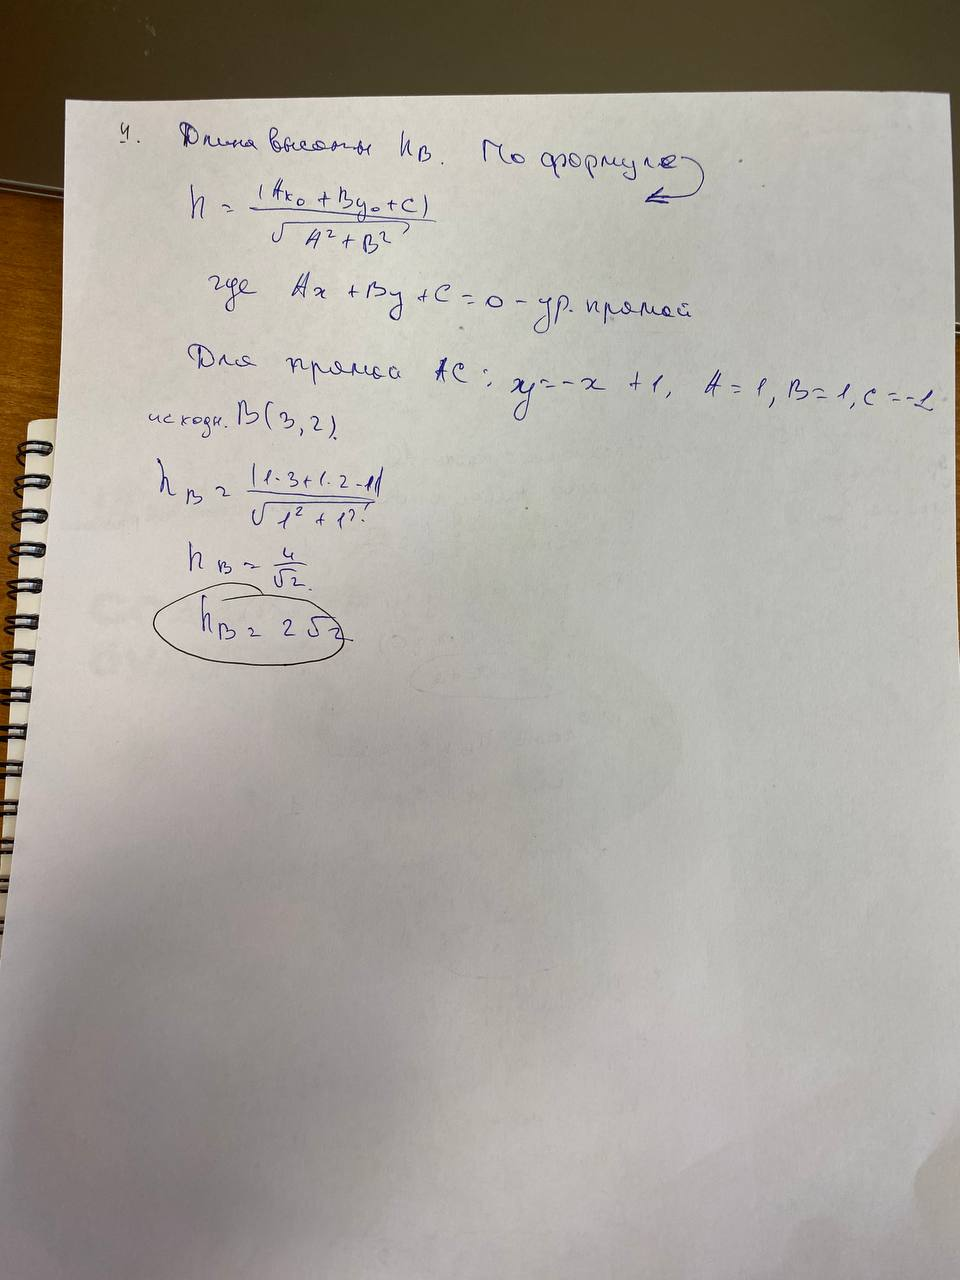 4. Длина высоты h_B. По формуле
h = |Ax₀ + By₀ + C| / √(A² + B²)
где Ax + By + C = 0 – ур. прямой
Для прямой AC: y = -x + 1, A = 1, B = 1, C = -1
исходн. B(3, 2).
h_B = |1·3 + 1·2 - 1| / √(1² + 1²)
h_B = 4/√2.
h_B = 2√2